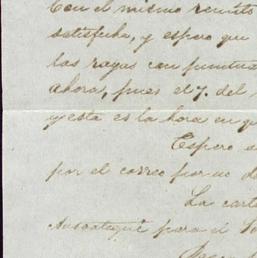 Con el mismo remito
satisfecha, y espero que
las rayas con puntua
ahora, pues el 7. del
y esta es la hora en q
Espero
por el correo por no d
La cart
para el